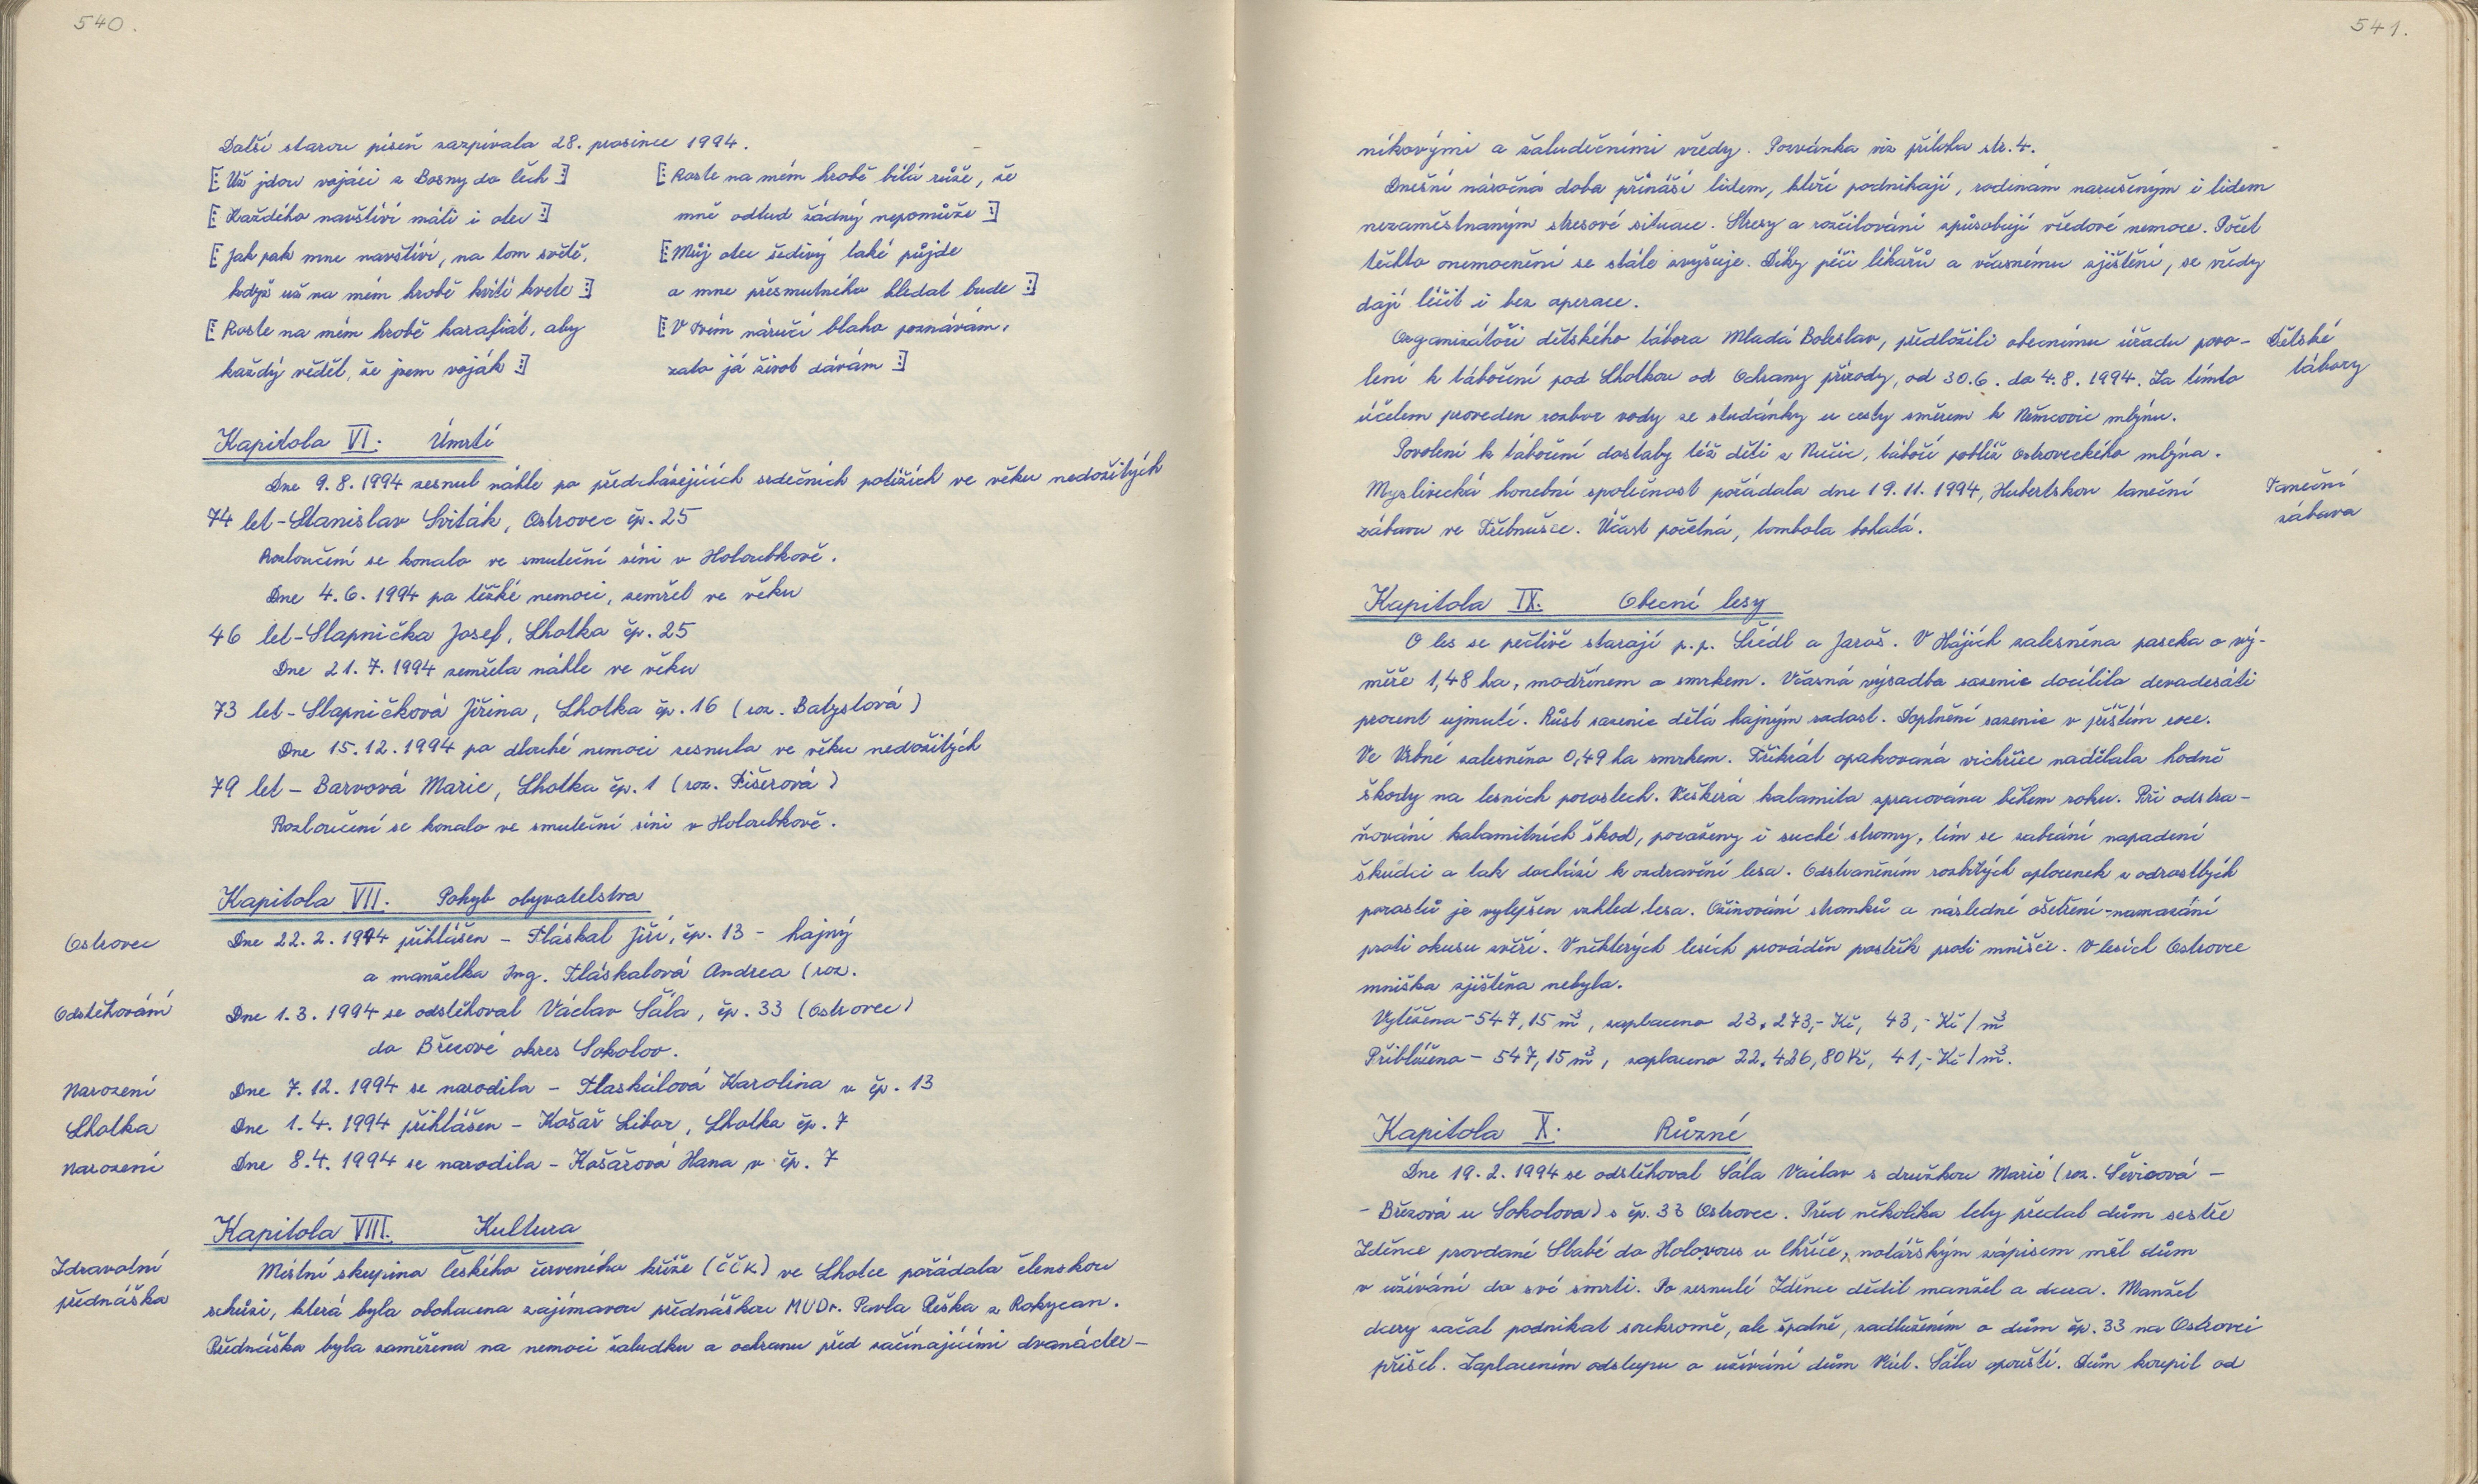 540.
Další starou píseň zazpívala 28. prosince 1994.
[: Už jdou vojáci z Bosny do Čech :]
[: Každého navštíví máti i otec :]
[: Jak pak mne navštíví, na tom světě,
když už na mém hrobě kvítí kvete :]
[: Roste na mém hrobě karafiát, aby
každý věděl, že jsem voják :]
[: Roste na mém hrobě bílá růže, že
mně odtud žádný nepomůže :]
[: Můj otec šedivý také půjde
a mne přesmutného hledat bude :]
[: V tvém náručí blaho poznávám,
zato já život dávám :]
Kapitola VI. Úmrtí
Dne 9.8.1994 zesnul náhle po předcházejících srdečních potížích ve věku nedožitých
74 let - Stanislav Sviták, Ostrovec čp. 25
Rozloučení se konalo ve smuteční síni v Holoubkově.
Dne 4.6.1994 po těžké nemoci, zemřel ve věku
46 let - Slapnička Josef, Lhotka čp. 25
Dne 21.7.1994 zemřela náhle ve věku
73 let - Slapničková Jiřina, Lhotka čp. 16 (roz. Batystová)
Dne 15.12.1994 po dlouhé nemoci zesnula ve věku nedožitých
79 let - Barvová Marie, Lhotka čp. 1 (roz. Fišerová)
Rozloučení se konalo ve smuteční síni v Holoubkově.
Kapitola VII. Pohyb obyvatelstva
Ostrovec Dne 22.2.1994 přihlášen - Fláskal Jiří, čp. 13 - hajný
a manželka Ing. Fláskalová Andrea (roz.
Odstěhování Dne 1.3.1994 se odstěhoval Václav Sála, čp. 33 (Ostrovec)
do Březové okres Sokolov.
Narození Dne 7.12.1994 se narodila - Flaskálová Karolina v čp. 13
Lhotka Dne 1.4.1994 přihlášen - Košař Libor, Lhotka čp. 7
Narození Dne 8.4.1994 se narodila - Košařová Hana v čp. 7
Kapitola VIII. Kultura
Zdravotní přednáška
Místní skupina českého červeného kříže (ČČK) ve Lhotce pořádala členskou
schůzi, která byla obohacena zajímavou přednáškou MUDr. Pavla Reška z Rokycan.
Přednáška byla zaměřena na nemoci žaludku a ochranu před začínajícími dvanácter-
541.
níkovými a žaludečními vředy. Pozvánka viz příloha str. 4.
Dnešní náročná doba přináší lidem, kteří podnikají, rodinám narušeným i lidem
nezaměstnaným stresové situace. Stresy a rozčilování způsobují vředové nemoce. Počet
těchto onemocnění se stále zvyšuje. Díky péči lékařů a včasnému zjištění, se vředy
dají léčit i bez operace.
Organizátoři dětského tábora Mladá Boleslav, předložili obecnímu úřadu povo-
lení k táboření pod Lhotkou od Ochrany přírody, od 30.6. do 4.8.1994. Za tímto
účelem proveden rozbor vody ze studánky u cesty směrem k Němcovic mlýnu.
Dětské tábory
Povolení k táboření dostaly též děti z Nučic, táboří poblíž Ostroveckého mlýna.
Myslivecká honební společnost pořádala dne 19.11.1994, Hubertskou taneční
zábavu ve Třebnušce. Účast početná, tombola bohatá.
Taneční zábava
Kapitola IX. Obecní lesy
O les se pečlivě starají p.p. Šiedl a Jaroš. V Hájích zalesněna paseka o vý-
měře 1,48 ha, modřínem a smrkem. Včasná výsadba sazenic docílila devadesáti
procent ujmutí. Růst sazenic dělá hajným radost. Doplnění sazenic v příštím roce.
Ve Vrbné zalesněno 0,49 ha smrkem. Třikrát opakovaná vichřice nadělala hodně
škody na lesních porostech. Veškerá kalamita zpracována během roku. Při odstra-
ňování kalamitních škod, poraženy i suché stromy, tím se zabrání napadení
škůdci a tak dochází k ozdravění lesa. Odstraněním rozbitých oplocenek z odrostlých
porostů je vylepšen vzhled lesa. Ožínování stromků a následné ošetření - namazání
proti okusu zvěří. V některých lesích prováděn postřik proti mnišce. V lesích Ostrovce
mniška zjištěna nebyla.
Vytěženo - 547,15 m³, zaplaceno 23.273,- Kč, 43,- Kč/m³
Přiblíženo - 547,15 m³, zaplaceno 22.426,80 Kč, 41,- Kč/m³.
Kapitola X. Různé
Dne 19.2.1994 se odstěhoval Sála Václav s družkou Marií (roz. Ševicová -
- Březová u Sokolova) s čp. 33 Ostrovec. Před několika lety předal dům sestře
Zdence provdané Slabé do Holovous u Chříče, notářským zápisem měl dům
v užívání do své smrti. Po zesnulé Zdence dědil manžel a dcera. Manžel
dcery začal podnikat soukromě, ale špatně, zadlužením o dům čp. 33 na Ostrovci
přišel. Zaplacením odstupu o užívání dům Václ. Sála opouští. Dům koupil od